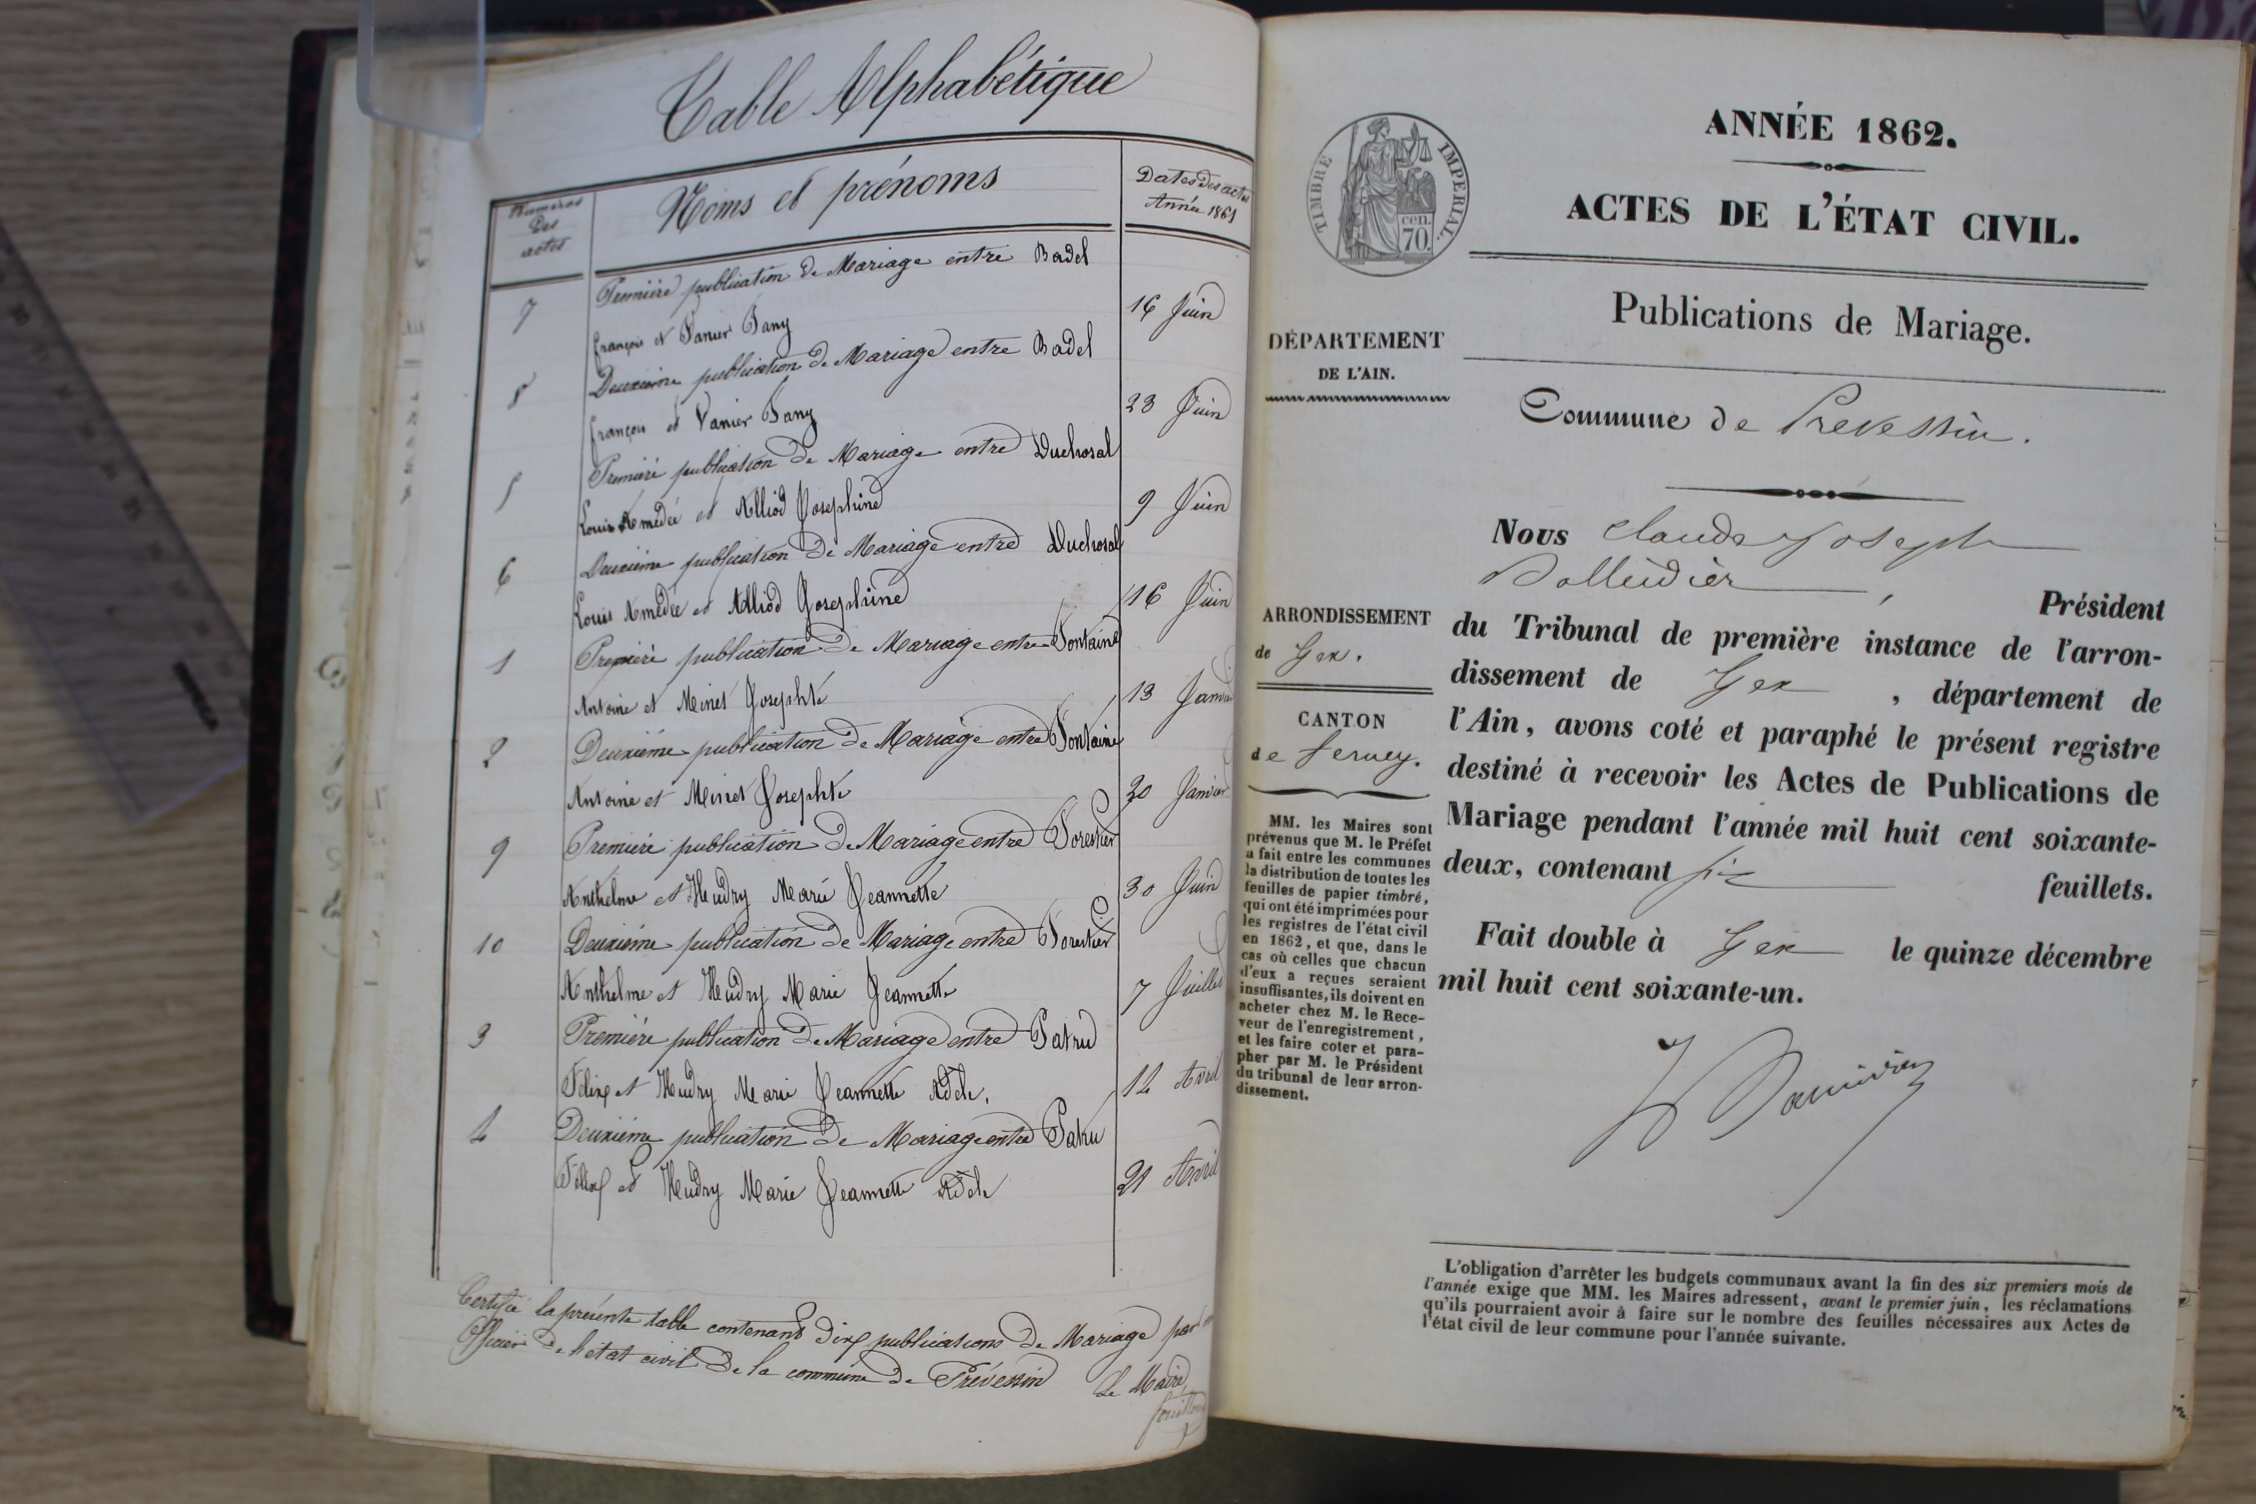 Table Alphabétique
Numéros des actes
Noms et prénoms
Dates des actes
Année 1861
7 Première publication de Mariage entre Badel
françois et Vanier Fany 16 Juin
8 Deuxième publication de Mariage entre Badel
françois et Vanier Fany 23 Juin
5 Première publication de Mariage entre Duchosal
Louis Amédée et Alliod Joséphine 9 Juin
6 Deuxième publication de Mariage entre Duchosal
Louis Amédée et Alliod Joséphine 16 Juin
1 Première publication de Mariage entre Fontaine
Antoine et Meinet Josephte 13 Janvier
2 Deuxième publication de Mariage entre Fontaine
Antoine et Meinet Josephte 20 Janvier
9 Première publication de Mariage entre Forestier
Anthelme et Hudry Marie Jeannette 30 Juin
10 Deuxième publication de Mariage entre Forestier
Anthelme et Hudry Marie Jeannette 7 Juillet
3 Première publication de Mariage entre Patru
Félix et Hudry Marie Jeannette Adèle. 14 Avril
4 Deuxième publication de Mariage entre Patru
Félix et Hudry Marie Jeannette Adèle 21 Avril
Certifié la présente table contenant dix publications de Mariage par
Officier de l'état civil de la commune de Prévessin
Le Maire
TIMBRE IMPERIAL.
cen.
70.
ANNÉE 1862.
ACTES DE L'ÉTAT CIVIL.
Publications de Mariage.
DÉPARTEMENT
DE L'AIN.
Commune de Prevessin.
ARRONDISSEMENT
de Gex.
CANTON
de Ferney.
MM. les Maires sont
prévenus que M. le Préfet
a fait entre les communes
la distribution de toutes les
feuilles de papier timbré,
qui ont été imprimées pour
les registres de l'état civil
en 1862, et que, dans le
cas où celles que chacun
d'eux a reçues seraient
insuffisantes, ils doivent en
acheter chez M. le Rece-
veur de l'enregistrement,
et les faire coter et para-
pher par M. le Président
du tribunal de leur arron-
dissement.
Nous Claude Joseph
, Président
du Tribunal de première instance de l'arron-
dissement de Gex , département de
l'Ain, avons coté et paraphé le présent registre
destiné à recevoir les Actes de Publications de
Mariage pendant l'année mil huit cent soixante-
deux, contenant six feuillets.
Fait double à Gex le quinze décembre
mil huit cent soixante-un.
L'obligation d'arrêter les budgets communaux avant la fin des six premiers mois de
l'année exige que MM. les Maires adressent, avant le premier juin, les réclamations
qu'ils pourraient avoir à faire sur le nombre des feuilles nécessaires aux Actes de
l'état civil de leur commune pour l'année suivante.